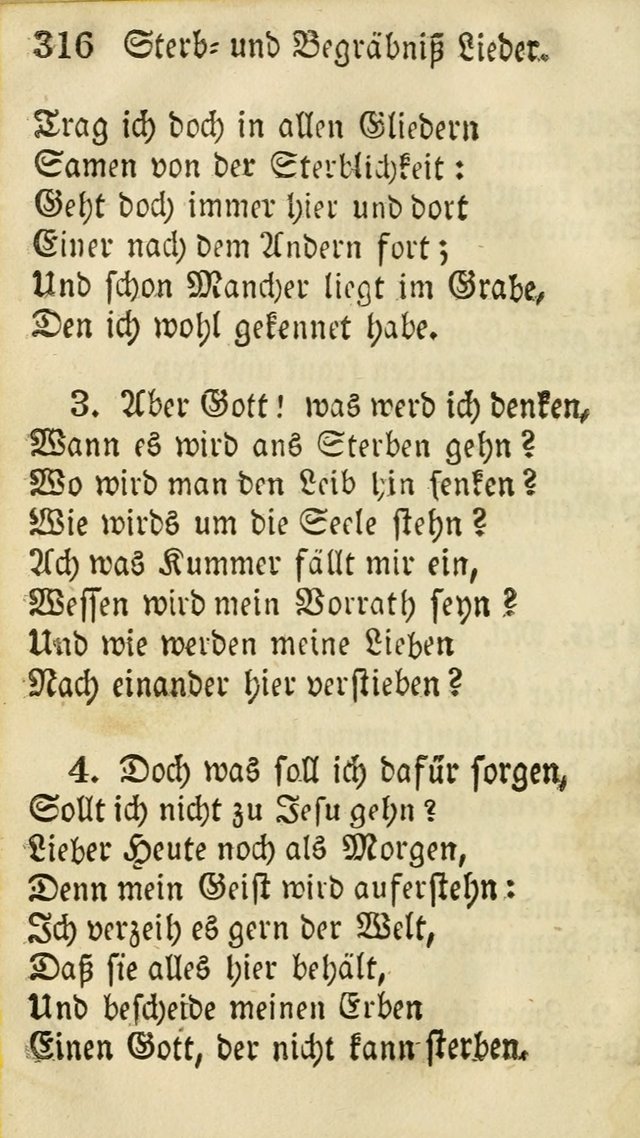 316 Sterb- und Begräbniß Lieder.
Trag ich doch in allen Gliedern
Samen von der Sterblichkeit:
Geht doch immer hier und dort
Einer nach dem Andern fort;
Und schon Mancher liegt im Grabe,
Den ich wohl gekennet habe.
3. Aber Gott! was werd ich denken,
Wann es wird ans Sterben gehn?
Wo wird man den Leib hin senken?
Wie wirds um die Seele stehn?
Ach was Kummer fällt mir ein,
Wessen wird mein Vorrath seyn?
Und wie werden meine Lieben
Nach einander hier verstieben?
4. Doch was soll ich dafür sorgen,
Sollt ich nicht zu Jesu gehn?
Lieber Heute noch als Morgen,
Denn mein Geist wird auferstehn:
Ich verzeih es gern der Welt,
Daß sie alles hier behält,
Und bescheide meinen Erben
Einen Gott, der nicht kann sterben.